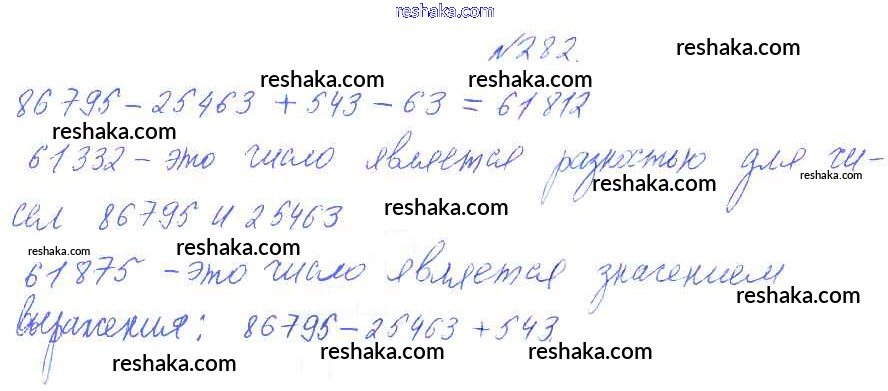 reshaka.com
№282.
reshaka.com
reshaka.com
reshaka.com
86795-25463+543-63=61812
reshaka.com
61332-это число является разностью для чи-
reshaka.com
reshaka.com
сел 86795 и 25463
reshaka.com
reshaka.com
reshaka.com
61875 -это число является значением
reshaka.com
выражения: 86795-25463+543.
reshaka.com
reshaka.com